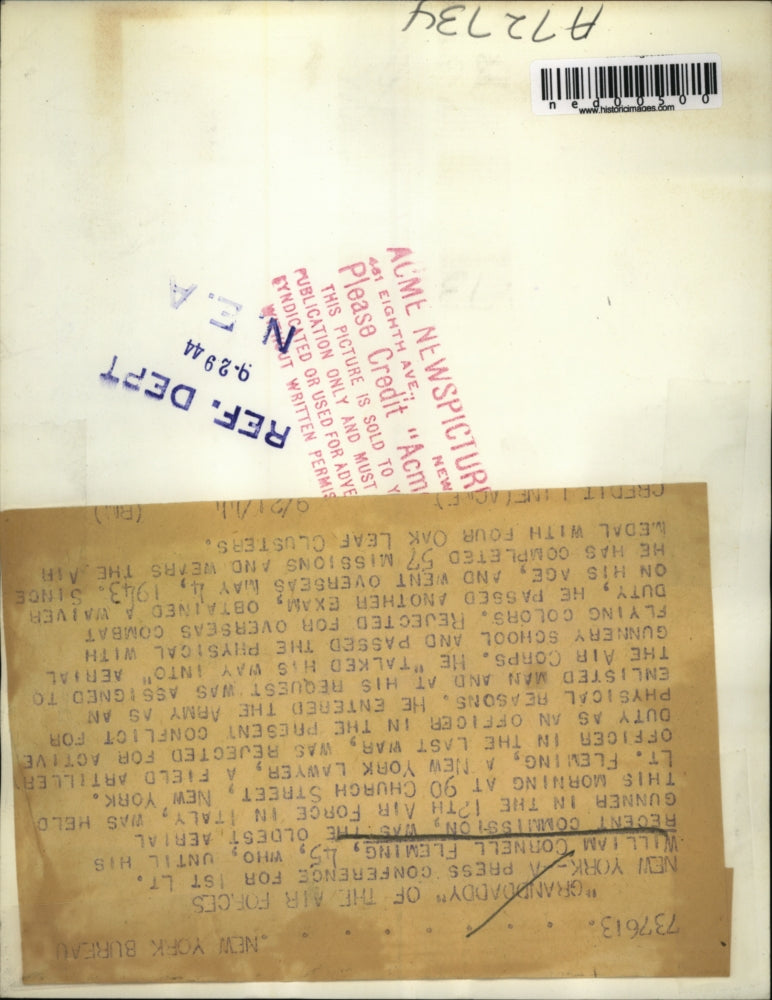 A72734
ned00500
www.historicimages.com
ACME NEWSPICTUR
461 EIGHTH AVE., NEW
Please Credit "Acm
THIS PICTURE IS SOLD TO Y
PUBLICATION ONLY AND MUST
SYNDICATED OR USED FOR ADVE
WITHOUT WRITTEN PERMIS
REF. DEPT
9-29 44
N. E. A
737613. . . . . . . .NEW YORK BUREAU
"GRANDDADDY" OF THE AIR FORCES
NEW YORK--A PRESS CONFERENCE FOR 1ST LT.
WILLIAM CORNELL FLEMING, 45, WHO, UNTIL HIS
RECENT COMMISSION, WAS THE OLDEST AERIAL
GUNNER IN THE 12TH AIR FORCE IN ITALY, WAS HELD
THIS MORNING AT 90 CHURCH STREET, NEW YORK.
LT. FLEMING, A NEW YORK LAWYER, A FIELD ARTILLERY
OFFICER IN THE LAST WAR, WAS REJECTED FOR ACTIVE
DUTY AS AN OFFICER IN THE PRESENT CONFLICT FOR
PHYSICAL REASONS. HE ENTERED THE ARMY AS AN
ENLISTED MAN AND AT HIS REQUEST WAS ASSIGNED TO
THE AIR CORPS. HE "TALKED HIS WAY INTO" AERIAL
GUNNERY SCHOOL AND PASSED THE PHYSICAL WITH
FLYING COLORS. REJECTED FOR OVERSEAS COMBAT
DUTY, HE PASSED ANOTHER EXAM, OBTAINED A WAIVER
ON HIS AGE, AND WENT OVERSEAS MAY 4, 1943. SINCE
HE HAS COMPLETED 57 MISSIONS AND WEARS THE AIR
MEDAL WITH FOUR OAK LEAF CLUSTERS.
CREDIT LINE(ACME) 9/21/44